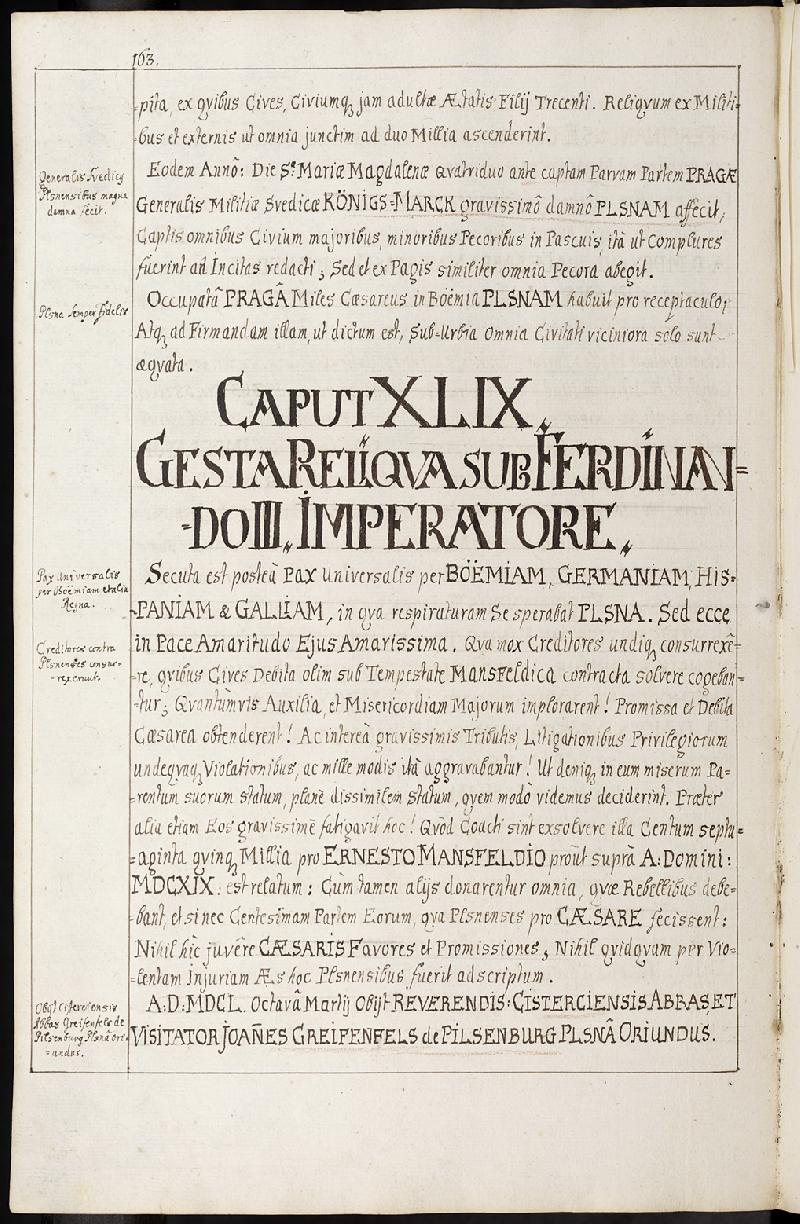 163.
-pita, ex qvibus Cives, Civiumq, jam adultæ Ætatis Filij Trecenti. Reliqvum ex Militi-
bus et externis ut omnia junctim ad duo Millia ascenderint.
Eodem Annô: Die Stæ Mariæ Magdalenæ Qvatriduo ante captam Parvam Partem PRAGÆ
Generalis Militiæ Svedicæ KÖNIGS-MARCK gravissimô damnô PLSNAM affecit;
Captis omnibus Civium majoribus, minoribus Pecoribus in Pascuis, itâ ut Complures
fuerint ad Incitas redacti, Sed et ex Pagis similiter omnia Pecora abegit.
Occupatâ PRAGÂ Miles Cæsareus in Böëmia PLSNAM habuit pro receptaculo;
Atq, ad Firmandam illam, ut dictum est, Sub-Urbia Omnia Civitati viciniora solo sunt
æqvata.
Generalis Svedicq
Plsnensibus magna
damna fecit.
Plsna semper fidelis
CAPUT XLIX.
GESTA RELIQVA SUB FERDINAN=
=DO III. IMPERATORE.
Secuta est posteà Pax universalis per BÖËMIAM, GERMANIAM, HIS=
PANIAM & GALLIAM, in qva respiraturam Se sperabat PLSNA. Sed ecce
in Pace Amaritudo Ejus Amarissima. Qva mox Creditores undiq, consurrexê-
-re, qvibus Cives Debita olim sub Tempestate Mansfeldica contracta solvere cogeban=
=tur; Qvantùmvis Auxilia, et Misericordiam Majorum implorarent! Promissa et Debita
Cæsarea obtenderent! Ac intereà gravissimis Tributis, Litigationibus Privilegiorum
undeqvaq, Violationibus, ac mille modis itâ aggravabantur! Ut deniq, in eum miserum Pa=
=rentum suorum statum, planè dissimilem statum, qvem modò videmus deciderint. Præter
alia etiam Eos gravissimè fatigavit hoc! Qvòd Coacti sint exsolvere illa Centum septu=
=aginta qvinq, Millia pro ERNESTO MANSFELDIO proùt suprà A: Domini:
MDCXIX. est relatum: Cùm tamen alijs donarentur omnia, qvæ Rebellibus debe=
=bant, et si nec Centesimam Partem Eorum, qva Plsnenses pro CÆSARE fecissent:
Nihil hîc juvêre CÆSARIS Favores et Promissiones, Nihil qvidqvam per Vio=
=lentam Injuriam Æs hoc Plsnensibus fuerit adscriptum.
A:D: MDCL. Octavâ Martij Obijt REVERENDIS: CISTERCIENSIS ABBAS ET
VISITATOR JOAÑES GREIFENFELS de PILSENBURG PLSNÂ ORIUNDUS.
Pax Universalis
per Böëmiam et alia
Regna.
Creditores contra
Plsnenses consur-
-rexerunt.
Obijt Cisterciensis
Abbas Greifenfels de
Pilsenburg Plsnâ ori-
-undus.